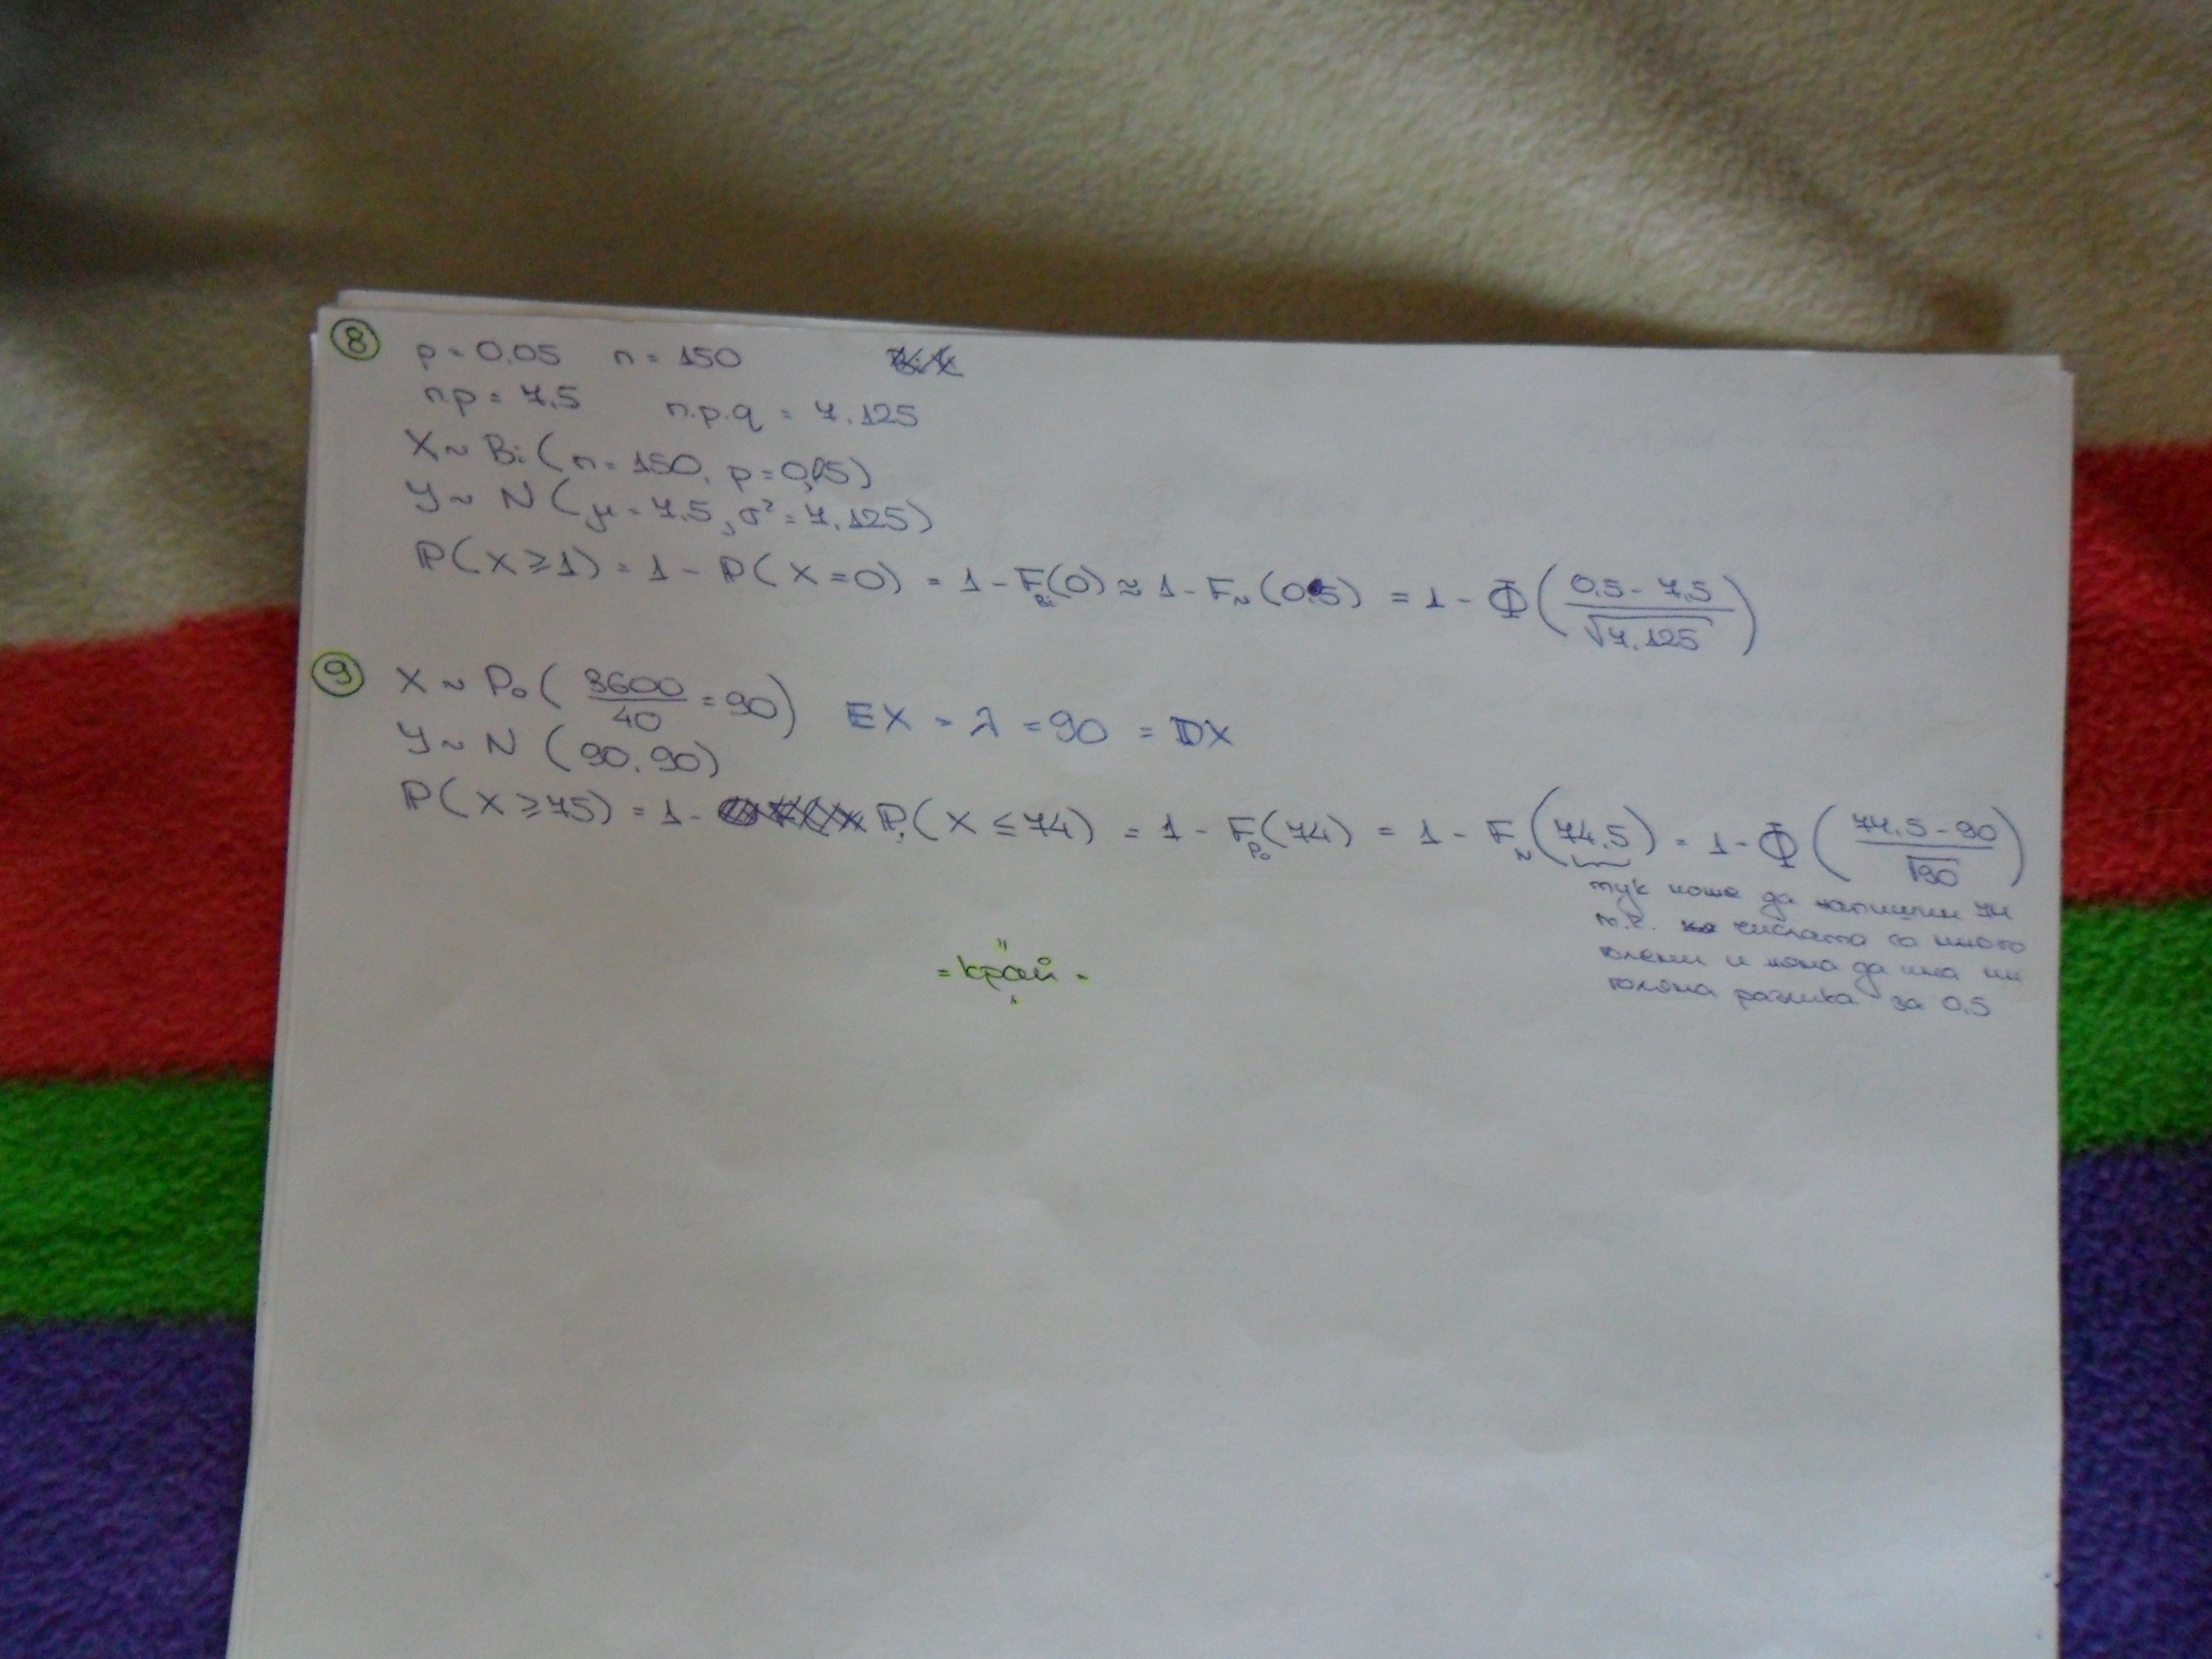 8 p = 0.05 n = 150
n.p = 7.5 n.p.q = 7.125
X ~ Bi (n = 150, p = 0,05)
Y ~ N (μ = 7.5, σ² = 7.125)
P(X ≥ 1) = 1 - P(X = 0) = 1 - F_Bi(0) ≈ 1 - F_N(0.5) = 1 - Φ((0.5 - 7.5)/√7.125)
9 X ~ Po (3600/40 = 90) EX = λ = 90 = DX
Y ~ N (90, 90)
P(X ≥ 75) = 1 - P(X ≤ 74) = 1 - F_Po(74) = 1 - F_N(74.5) = 1 - Φ((74.5 - 90)/√90)
тук може да напишем 74
т.к. числата са много
големи и няма да има
голяма разлика за 0.5
= край =